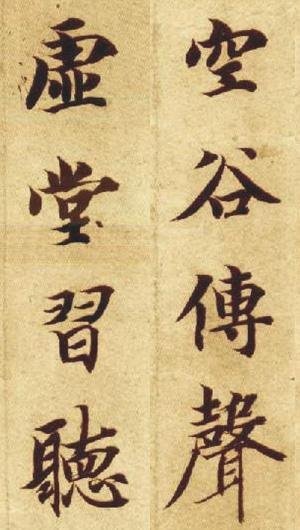 空谷傳聲
虛堂習聽